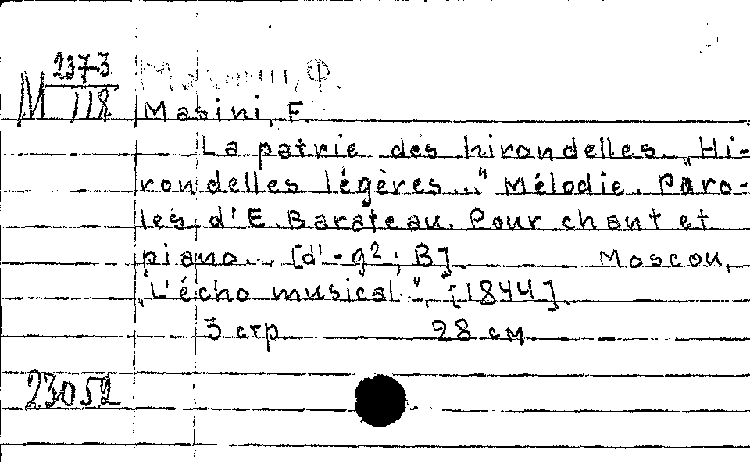 М 237-3/118
Мазини, Ф.
Masini, F.
La patrie des hirondelles. „Hi-
rondelles légères..." Mélodie. Paro-
les d'E. Barateau. Pour chant et
piano. [d'-g²; B] Moscou,
„L'écho musical", [1844].
3 стр 28 см
23052